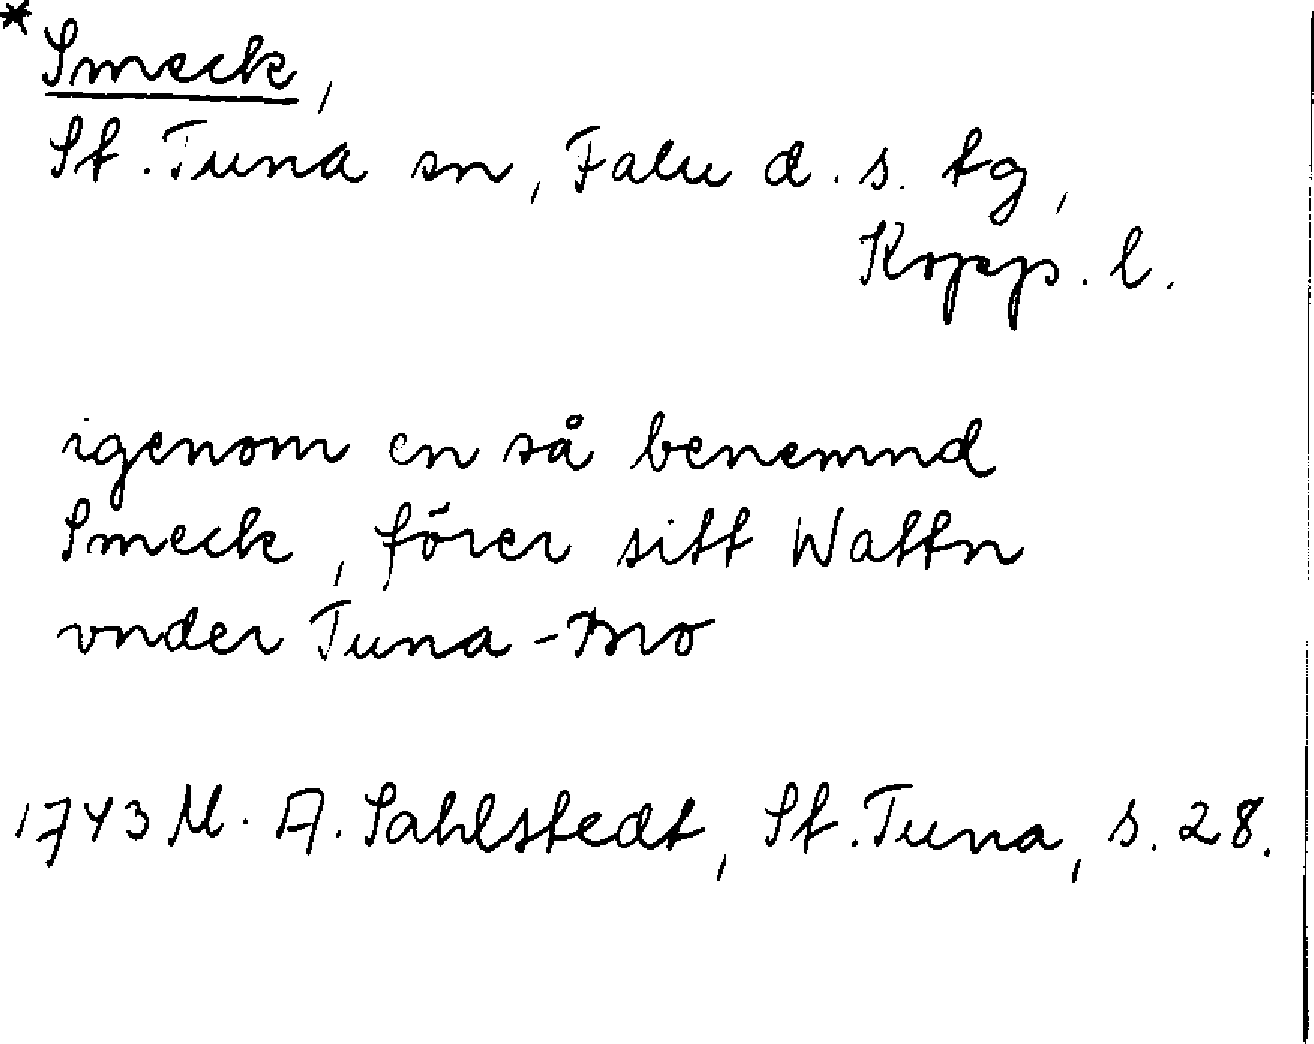 *Smeck,
St. Tuna sn, Falu d. s. tg,
Kopp. l.
igenom en så benemnd
Smeck, förer sitt Wattn
vnder Tuna-Bro
1743 M. A. Sahlstedt, St. Tuna, s. 28.